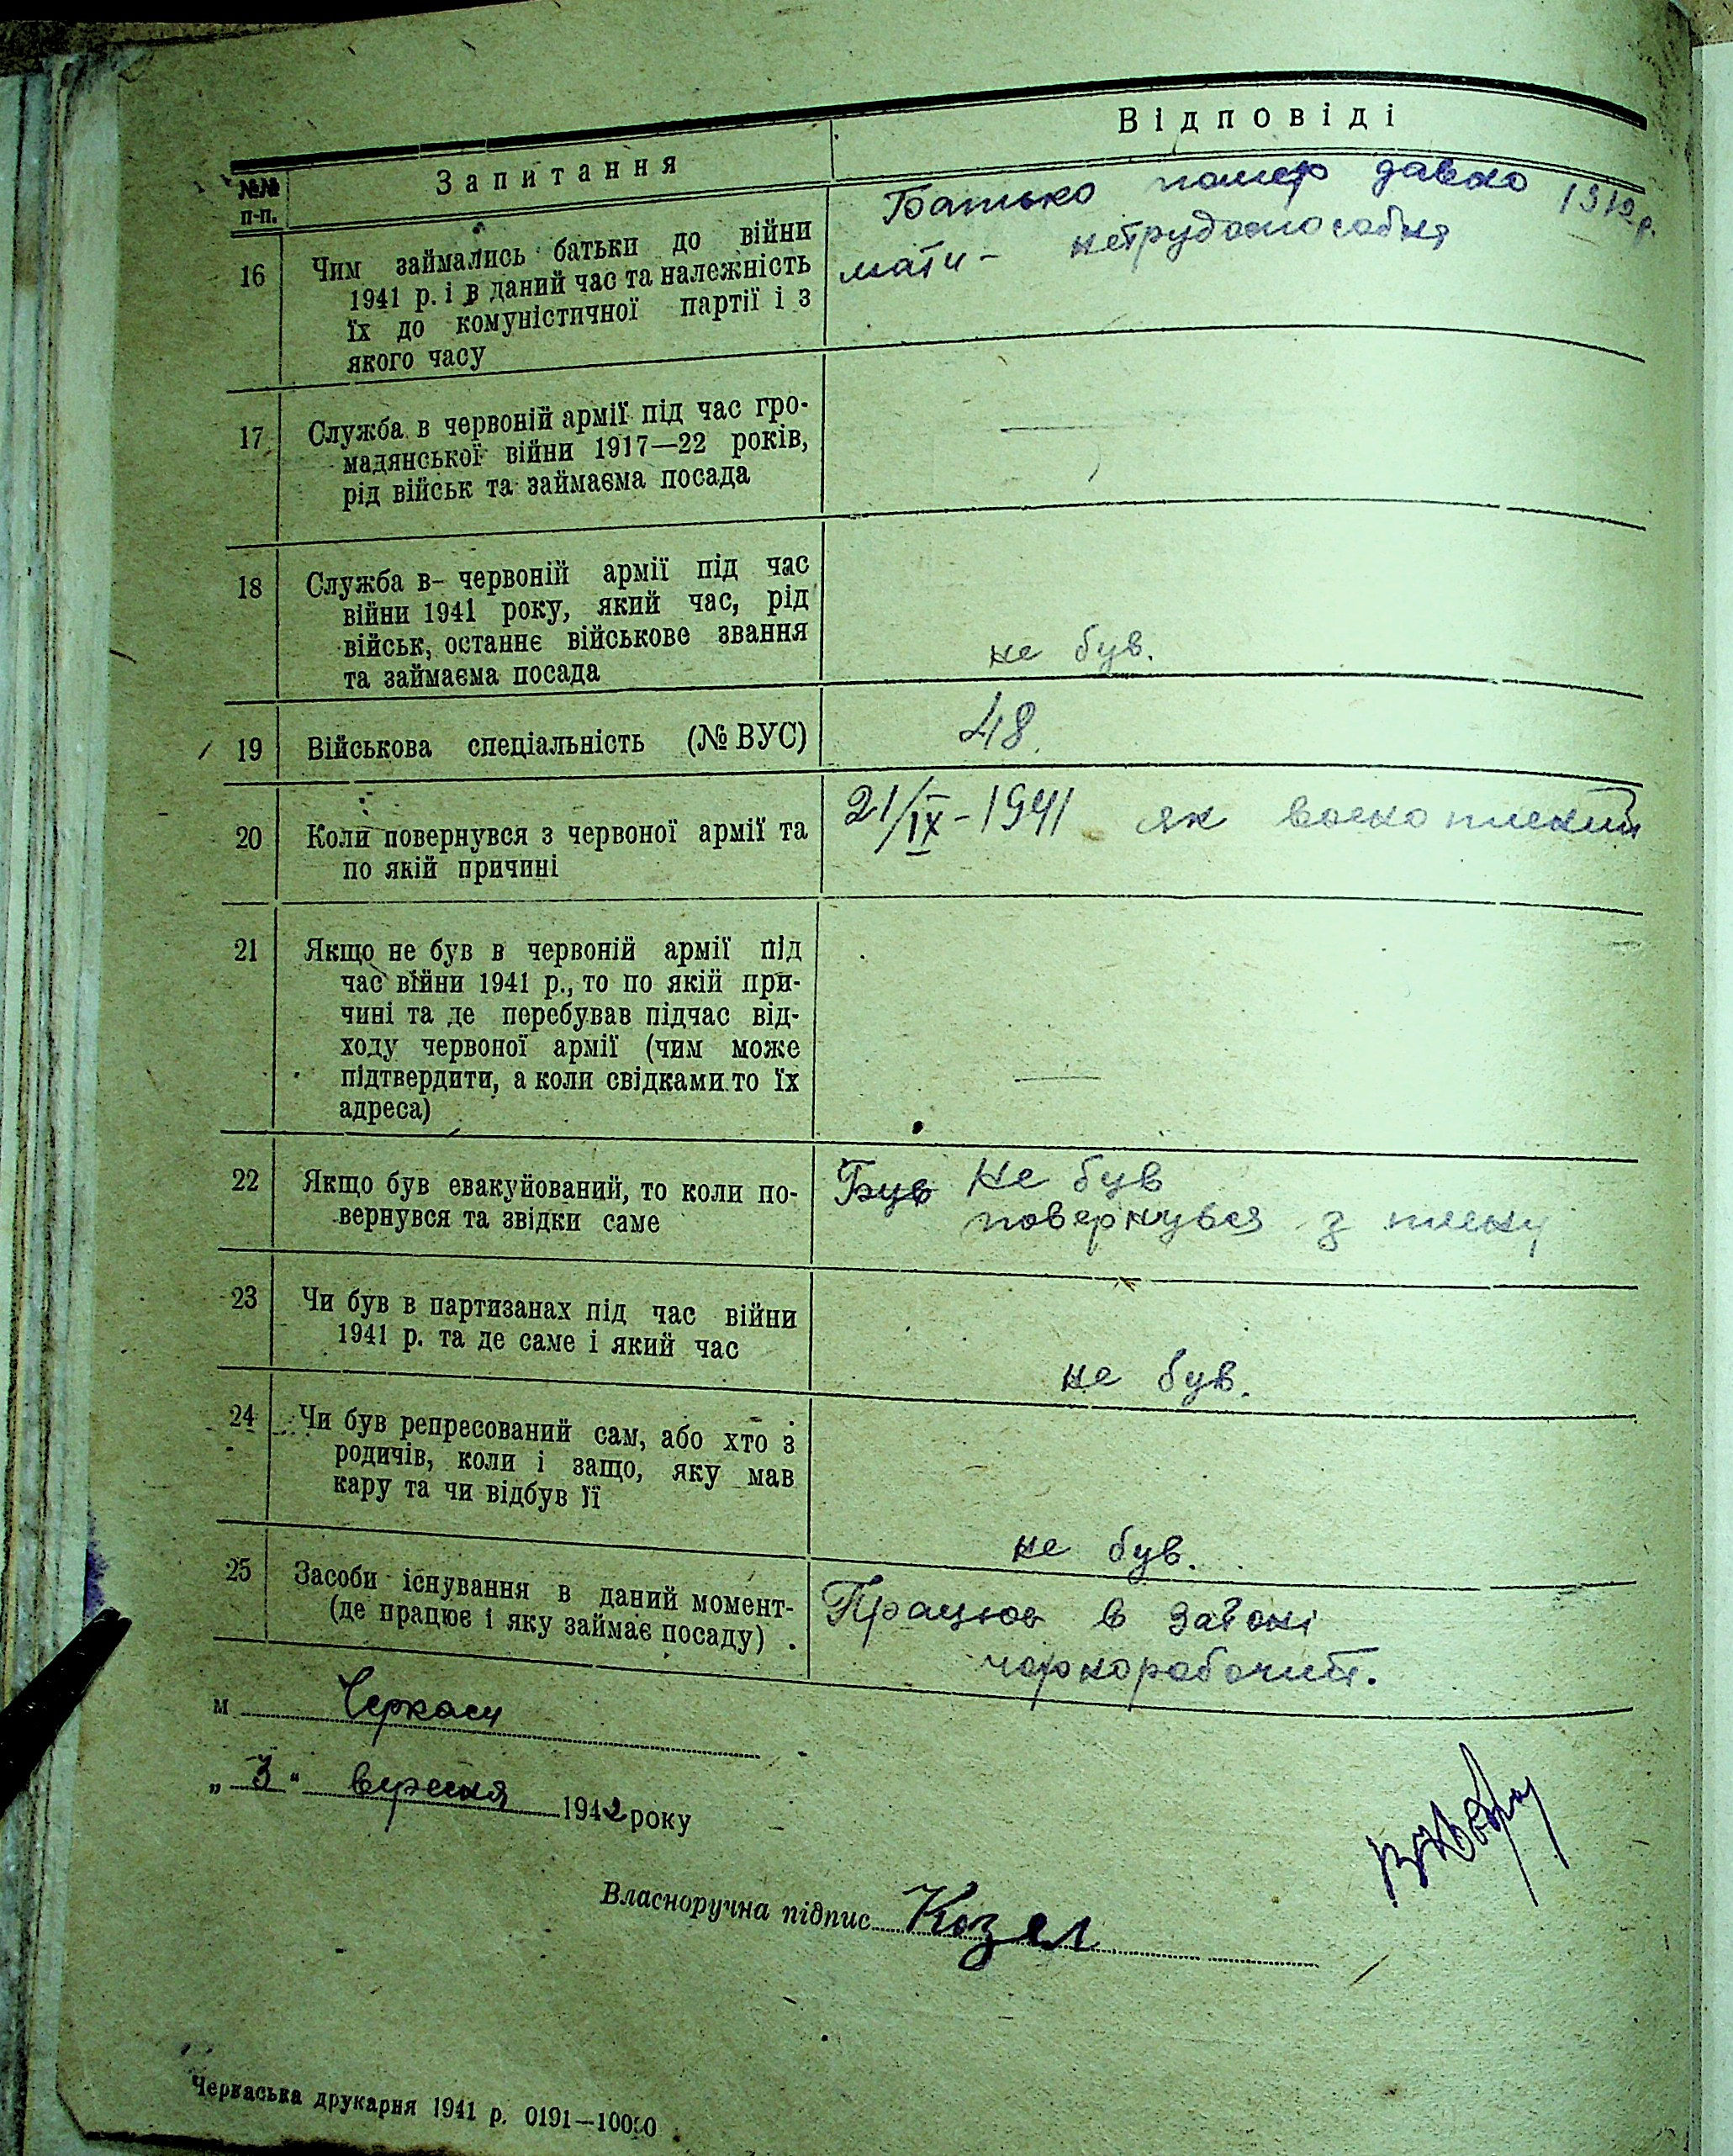 Відповіді
№№ п-п.
Запитання
16
Чим займались батьки до війни
1941 р. і в даний час та належність
їх до комуністичної партії і з
якого часу
Батько помер давно 1912 р.
мати - нетрудоспособня
17
Служба в червоній армії під час гро-
мадянської війни 1917—22 років,
рід військ та займаєма посада
—
18
Служба в червоній армії під час
війни 1941 року, який час, рід
військ, останнє військове звання
та займаєма посада
не був.
19
Військова спеціальність (№ ВУС)
48.
20
Коли повернувся з червоної армії та
по якій причині
21/IX-1941 як военопленний
21
Якщо не був в червоній армії під
час війни 1941 р., то по якій при-
чині та де перебував підчас від-
ходу червоної армії (чим може
підтвердити, а коли свідками то їх
адреса)
—
22
Якщо був евакуйований, то коли по-
вернувся та звідки саме
Був Не був
повернувся з плену
23
Чи був в партизанах під час війни
1941 р. та де саме і який час
не був.
24
Чи був репресований сам, або хто з
родичів, коли і защо, яку мав
кару та чи відбув її
не був.
25
Засоби існування в даний момент-
(де працює і яку займає посаду) .
Працюю в затоні
чорнорабочий.
м Черкаси
„ 3 " вересня 1942 року
Власноручна підпис Козел
Черкаська друкарня 1941 р. 0191—10000